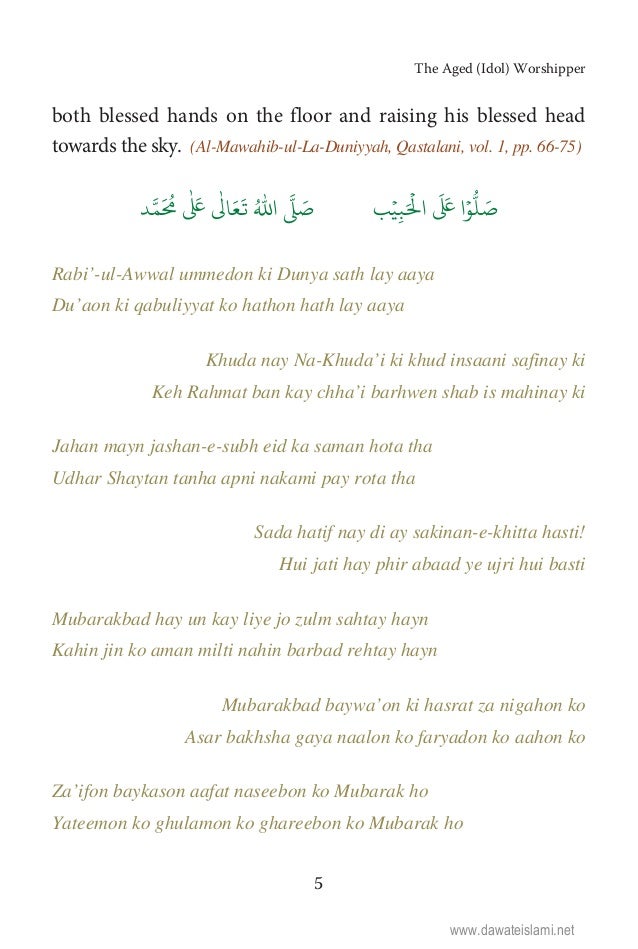 The Aged (Idol) Worshipper
both blessed hands on the floor and raising his blessed head
towards the sky. (Al-Mawahib-ul-La-Duniyyah, Qastalani, vol. 1, pp. 66-75)
صَلُّوْا عَلَى الْحَبِيْب صَلَّى اللهُ تَعَالٰى عَلٰى مُحَمَّد
Rabi’-ul-Awwal ummedon ki Dunya sath lay aaya
Du’aon ki qabuliyyat ko hathon hath lay aaya
Khuda nay Na-Khuda’i ki khud insaani safinay ki
Keh Rahmat ban kay chha’i barhwen shab is mahinay ki
Jahan mayn jashan-e-subh eid ka saman hota tha
Udhar Shaytan tanha apni nakami pay rota tha
Sada hatif nay di ay sakinan-e-khitta hasti!
Hui jati hay phir abaad ye ujri hui basti
Mubarakbad hay un kay liye jo zulm sahtay hayn
Kahin jin ko aman milti nahin barbad rehtay hayn
Mubarakbad baywa’on ki hasrat za nigahon ko
Asar bakhsha gaya naalon ko faryadon ko aahon ko
Za’ifon baykason aafat naseebon ko Mubarak ho
Yateemon ko ghulamon ko ghareebon ko Mubarak ho
5
www.dawateislami.net